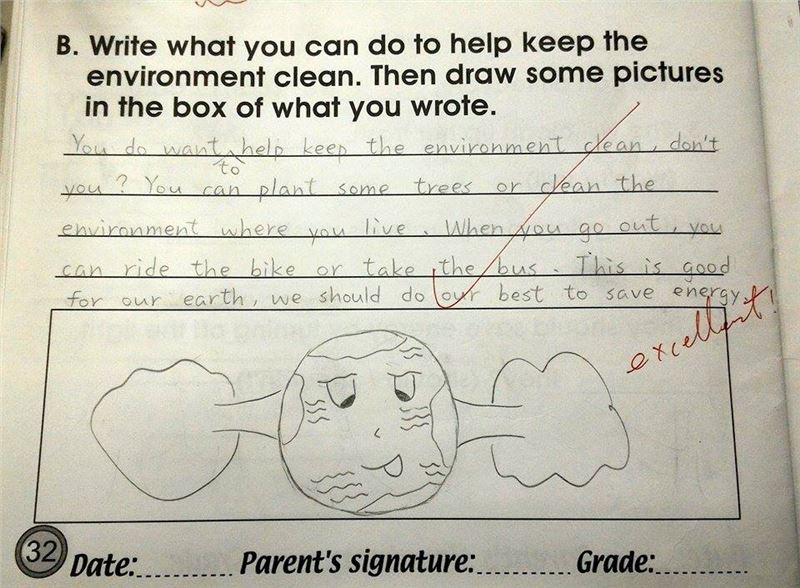 B. Write what you can do to help keep the
environment clean. Then draw some pictures
in the box of what you wrote.
You do want help keep the environment clean, don't
to
you? You can plant some trees or clean the
environment where you live. When you go out, you
can ride the bike or take the bus. This is good
for our earth, we should do our best to save energy.
excellent!
32 Date:......... Parent's signature:......... Grade:.........